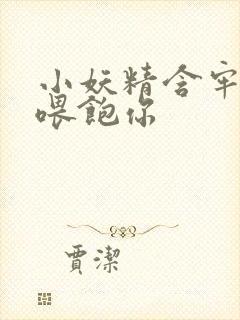 小妖精含牢
喂飽你
賈潔